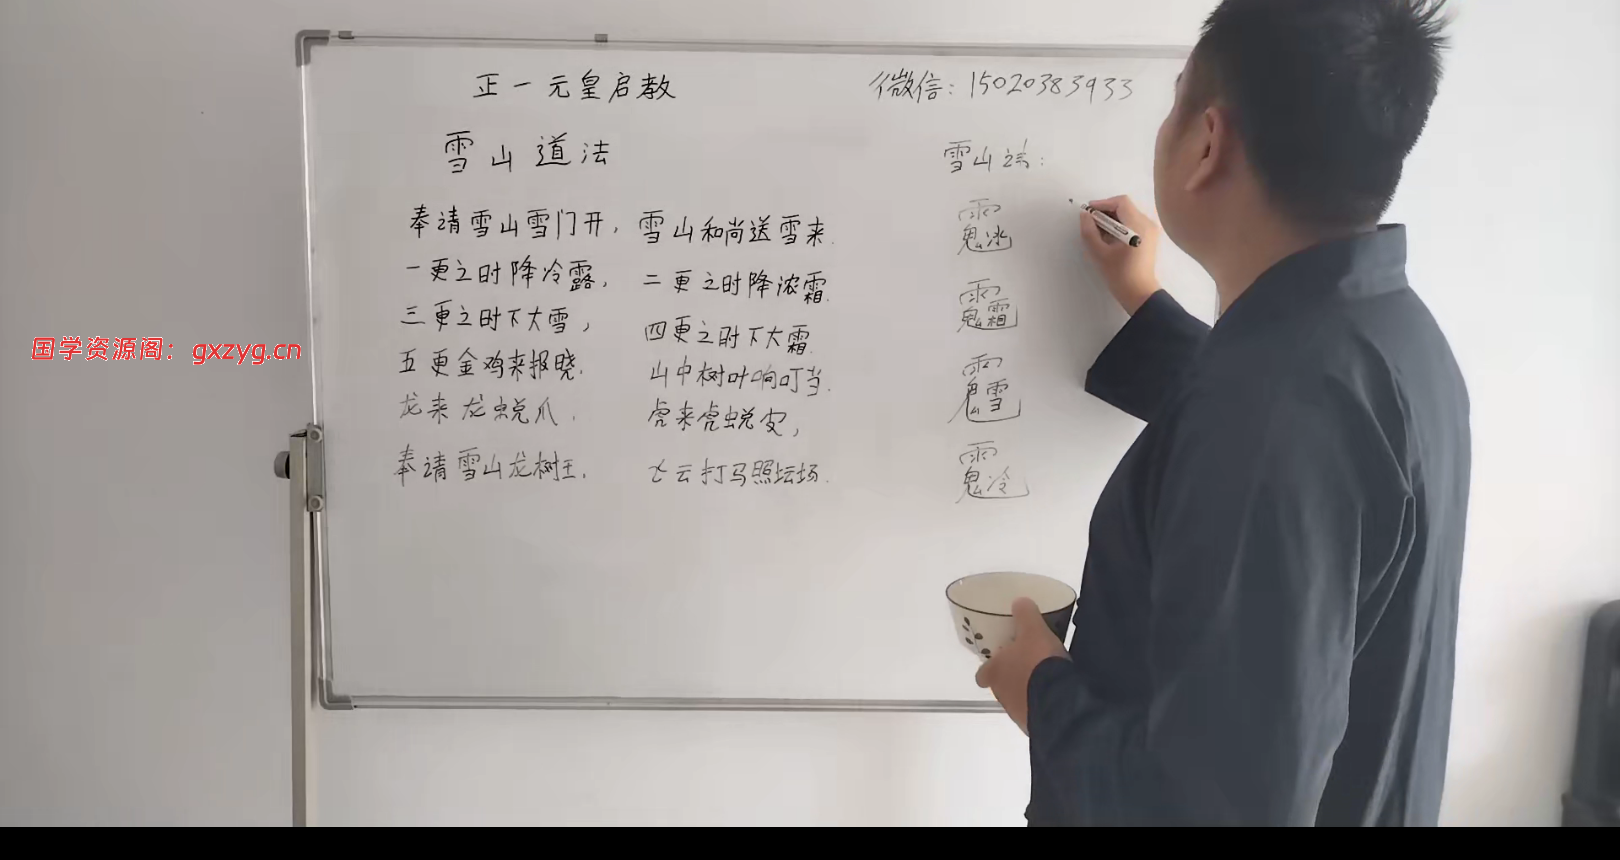 正一元皇启教
微信：15020383933
雪山道法
奉请雪山雪门开，雪山和尚送雪来.
一更之时降冷露，二更之时降浓霜.
三更之时下大雪，四更之时下大霜.
五更金鸡来报晓.山中树叶响叮当.
龙来龙蜕爪.虎来虎蜕皮，
奉请雪山龙树王.七云打马照坛场.
雪山讳：
国学资源阁：gxzyg.cn